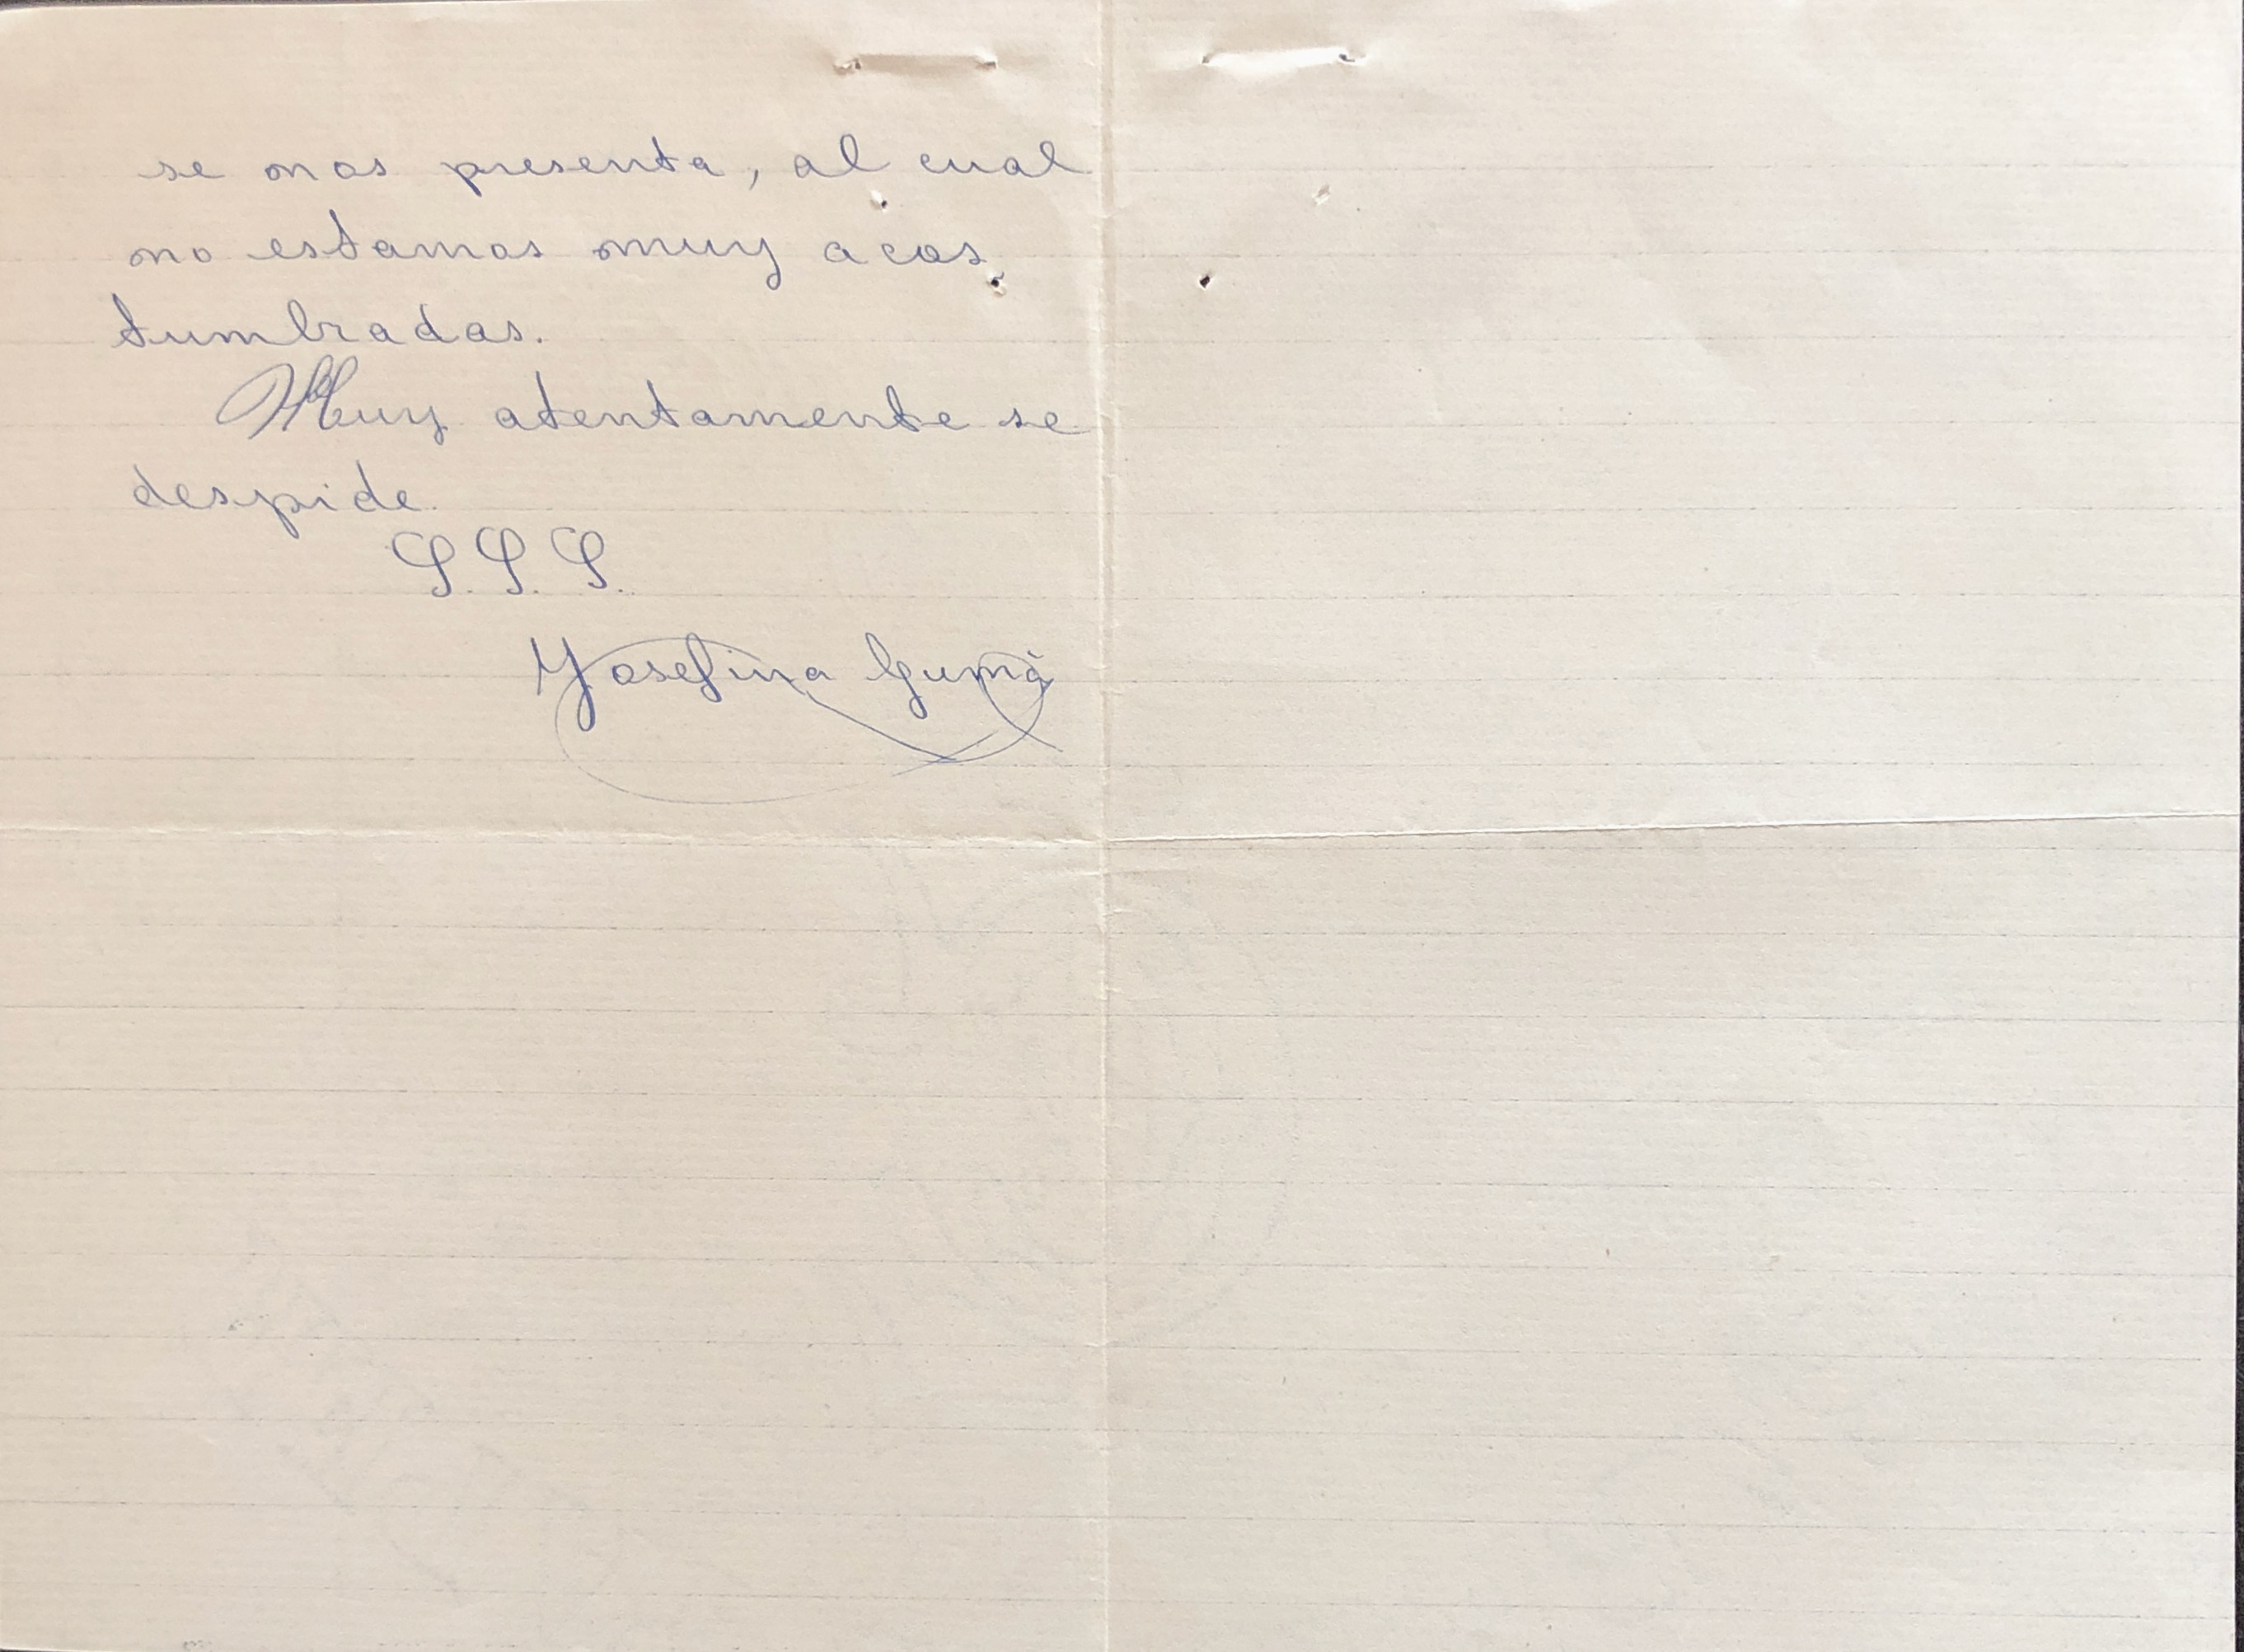 se nos presenta, al cual
no estamos muy acos
tumbradas.
Muy atentamente se
despide
S. S. S.
Josefina Gumà